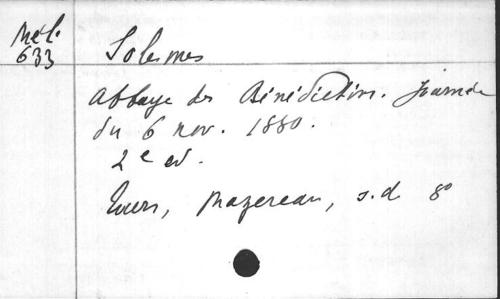 Mél.
633
Solesmes
Abbaye des Bénédictins. Journée
du 6 nov. 1880.
2e ed.
Tours, Mazereau, s.d 8°